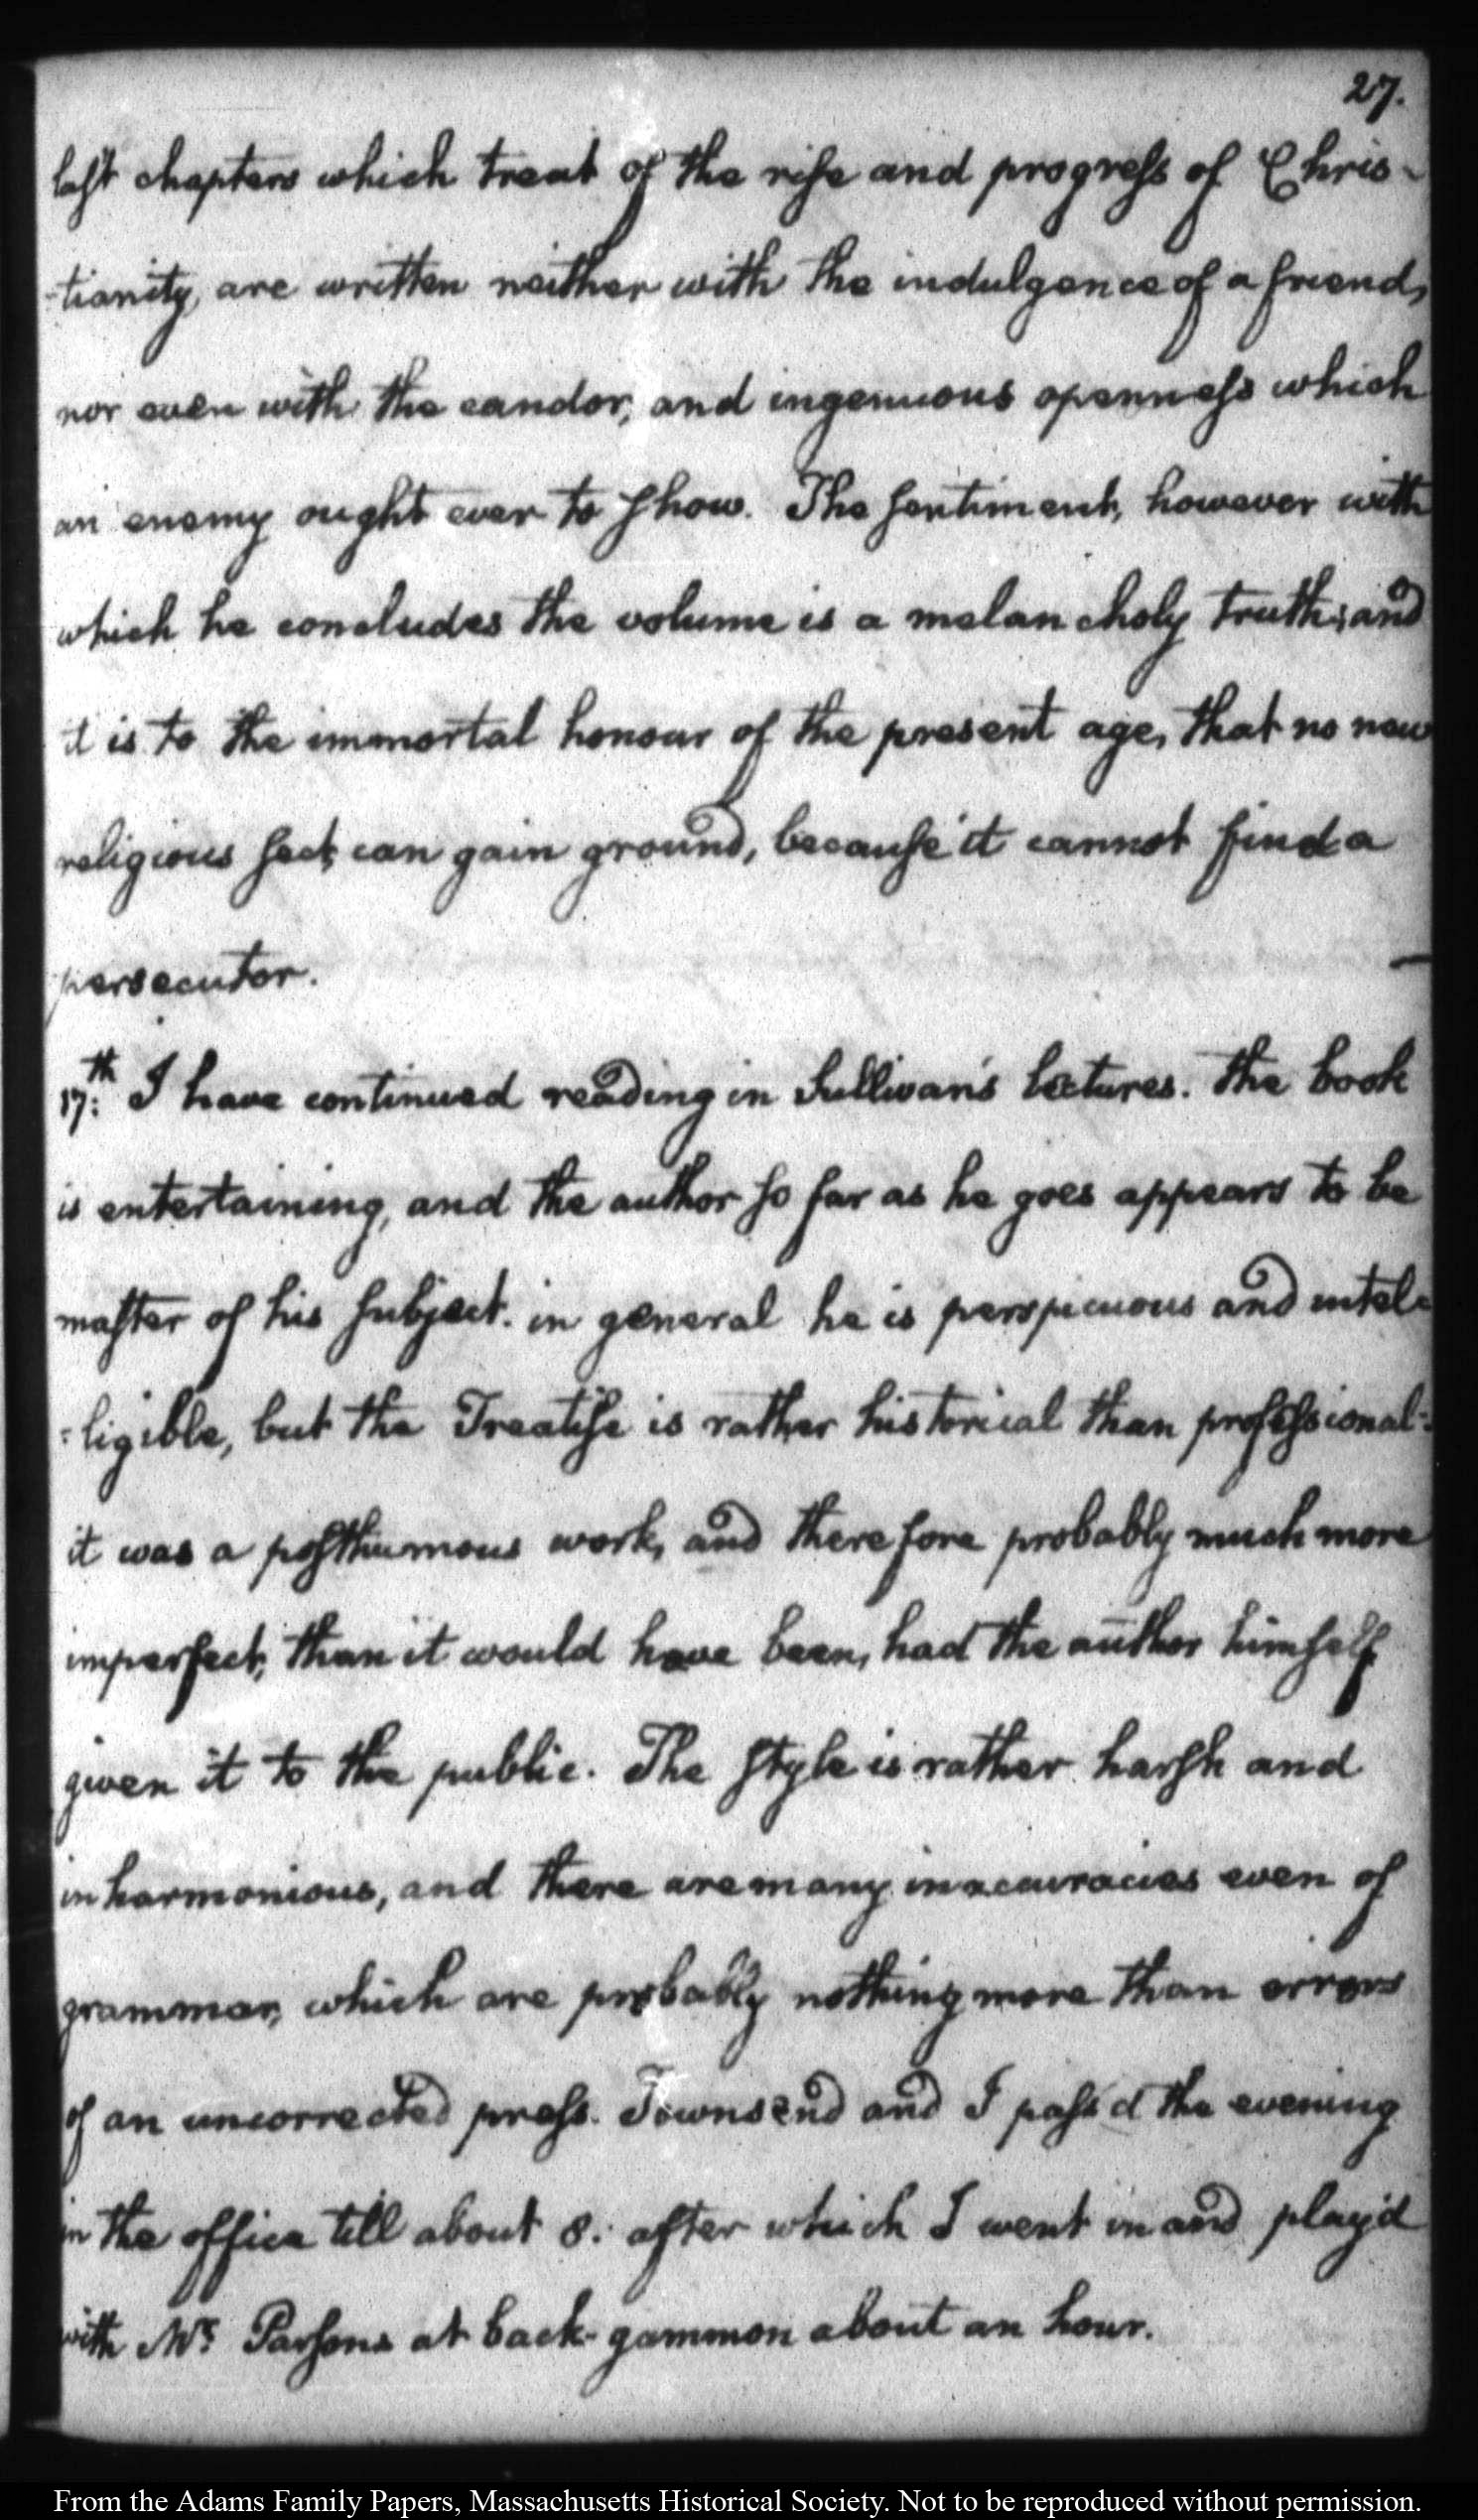 27.
last chapters which treat of the rise and progress of Chris-
-tianity, are written neither with the indulgence of a friend,
nor even with the candor, and ingenuous openness which
an enemy ought ever to show. The sentiment, however with
which he concludes the volume is a melancholy truth; and
it is to the immortal honour of the present age, that no new
religious sect, can gain ground, because it cannot find a
persecutor.
17th: I have continued reading in Sullivan's lectures. The book
is entertaining, and the author so far as he goes appears to be
master of his subject. in general he is perspicuous and intel-
-ligible, but the Treatise is rather historical than professional:
it was a posthumous work, and therefore probably much more
imperfect, than it would have been, had the author himself
given it to the public. The style is rather harsh and
inharmonious, and there are many inaccuracies even of
grammar, which are probably nothing more than errors
of an uncorrected press. Townsend and I pass'd the evening
in the office till about 8: after which I went in and play'd
with Mr. Parsons at back-gammon about an hour.
From the Adams Family Papers, Massachusetts Historical Society. Not to be reproduced without permission.